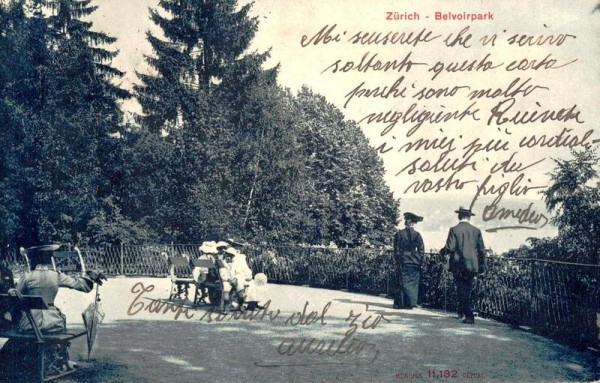 Zürich - Belvoirpark
Mi scuserete che vi scrivo
soltanto questa carta
perchè sono molto
negligiente Ricevete
i miej più cordiali
saluti da
vostro figlio
Amedeo
Tanti saluto dal zio
Aurelio
11,182